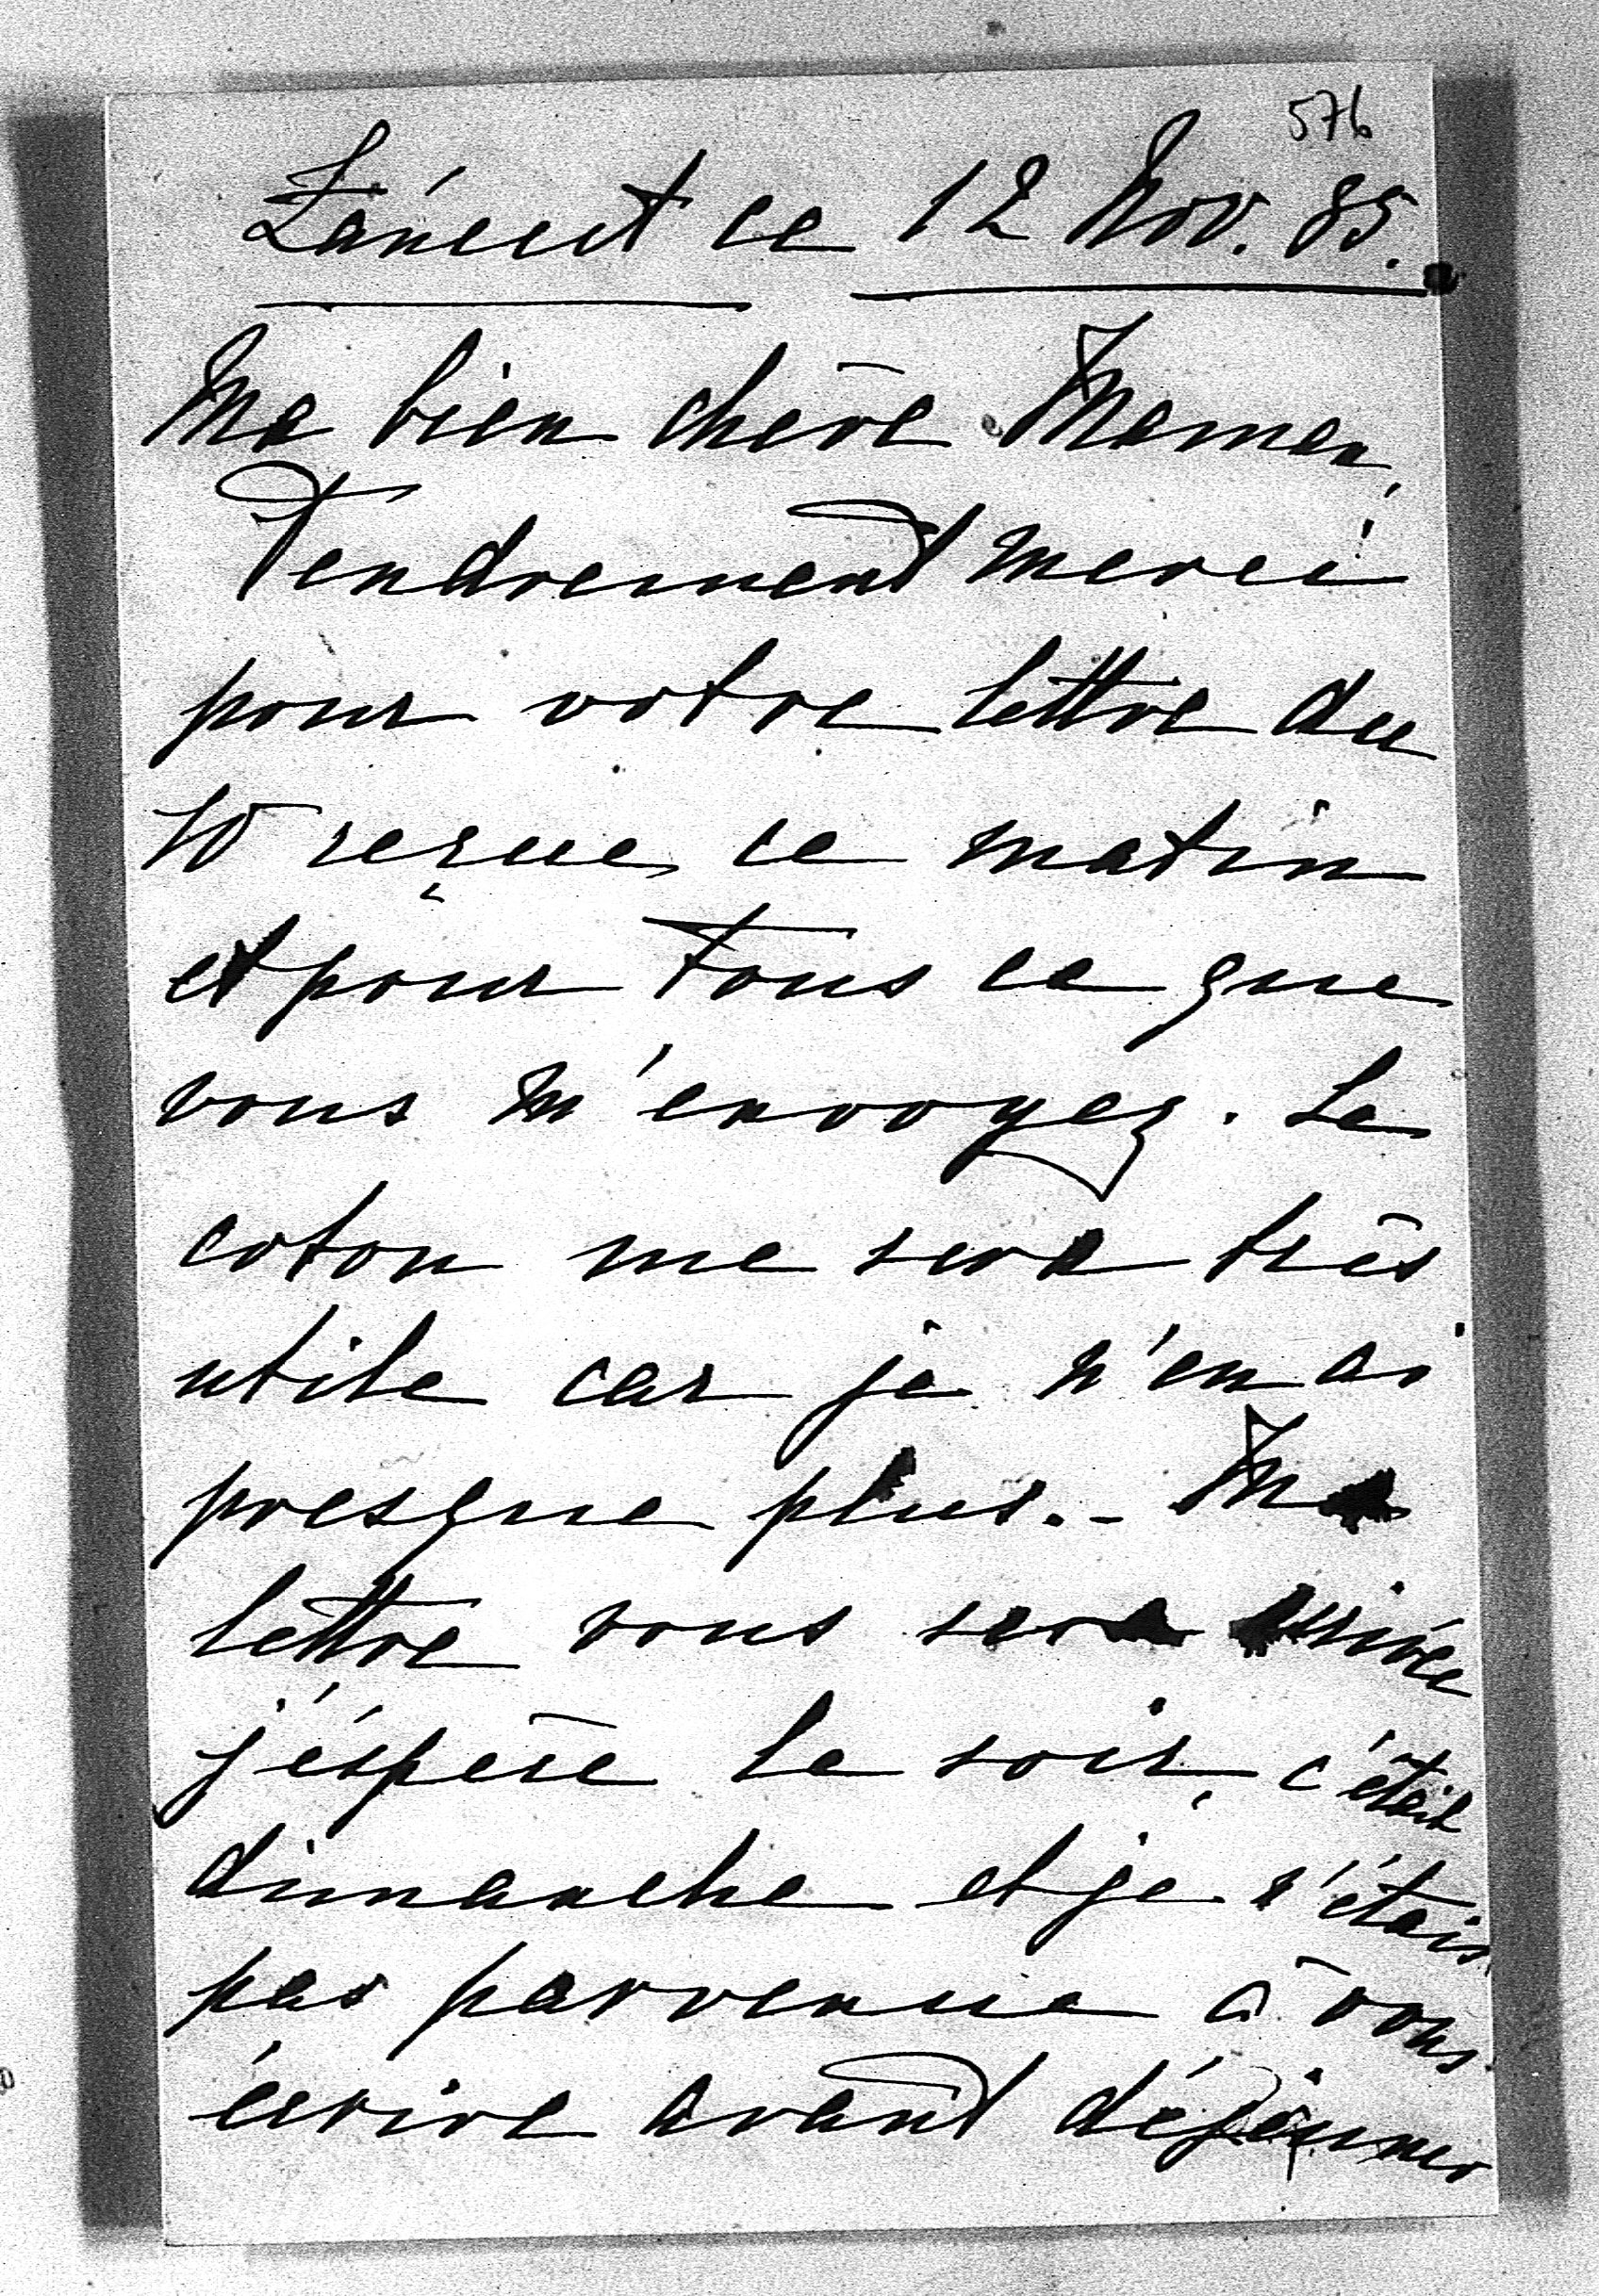 576
Łańcut ce 12 Nov. 85.
Ma bien chère Maman,
Tendrement merci
pour votre lettre du
10 reçue ce matin
et pour tous ce que
vous m'envoyez. Le
coton me sera très
utile car je n'en ai
presque plus. - Ma
lettre vous sera arrivée
j'éspère le soir, c'était
dimanche et je n'étais
pas parvenue à vous
écrire avant déjeuner